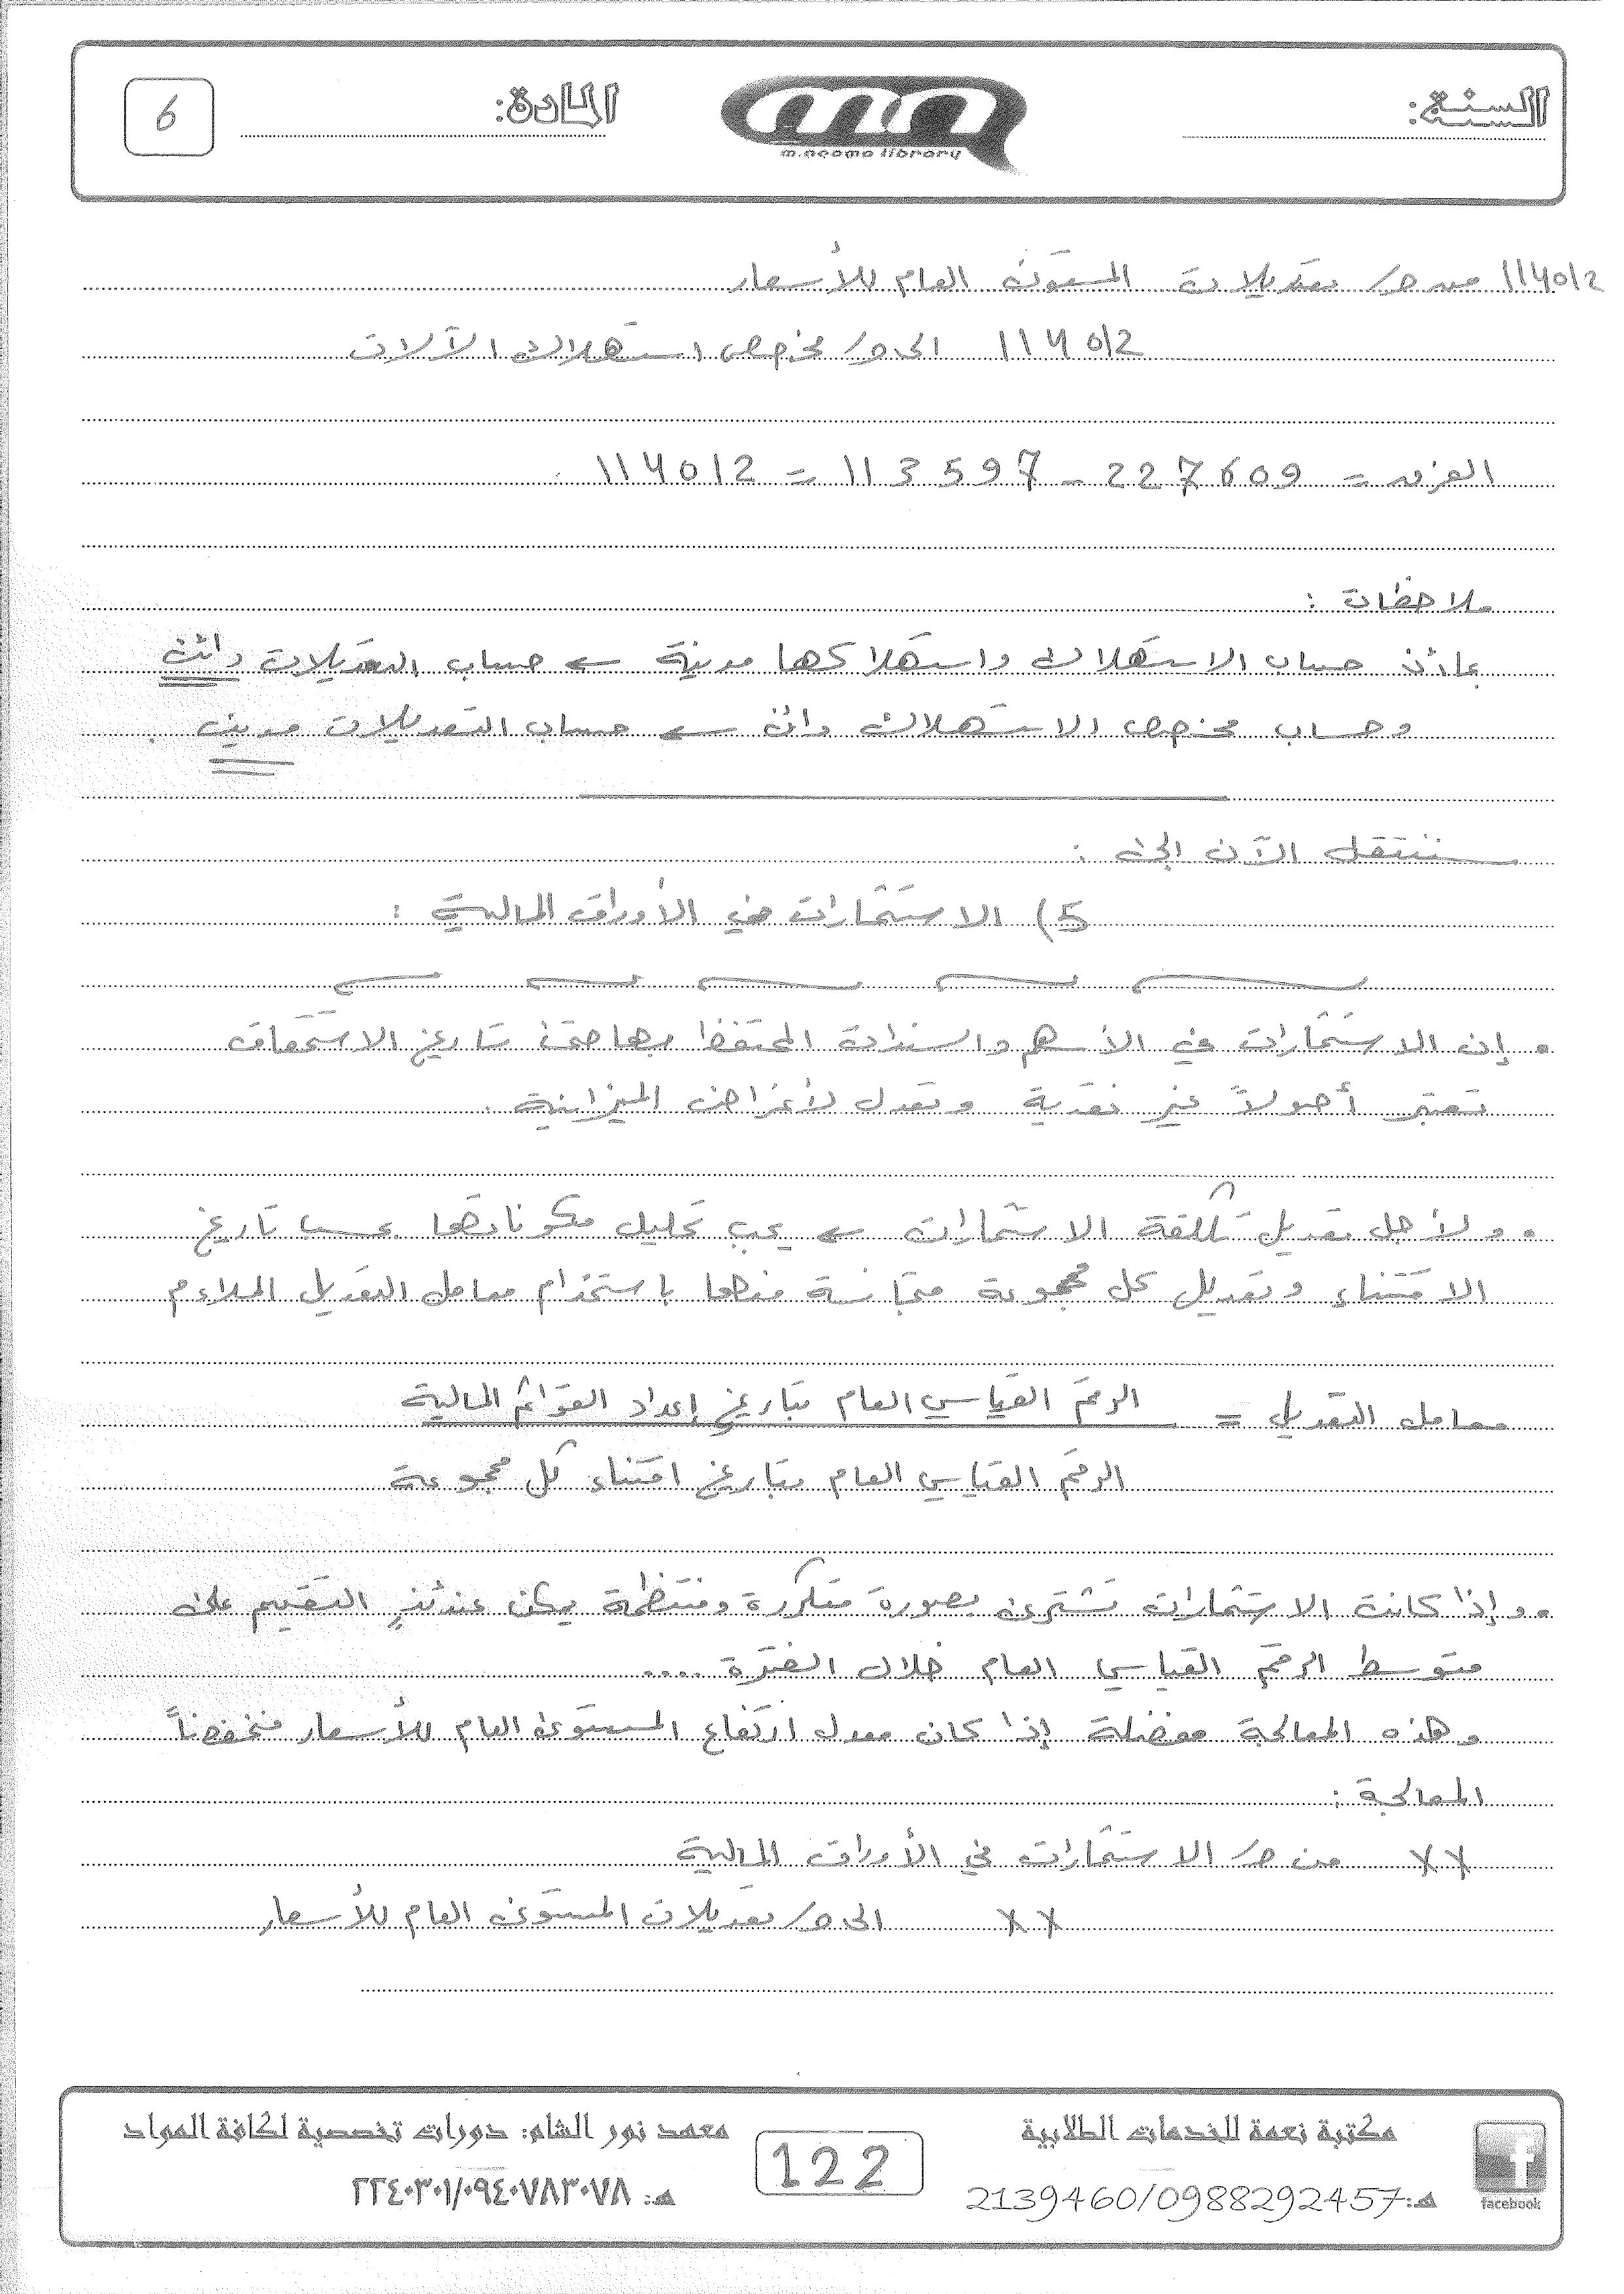 السنة:
m.neama library
المادة:
6
114012 من ح/ تعديلات المستوى العام للأسعار
114012 إلى ح/ مخصص استهلاك الآلات
الفرق = 227609 - 113597 = 114012
ملاحظات :
حساب الاستهلاك واستهلاكها مدينة ← حساب التعديلات دائن
وحساب مخصص الاستهلاك دائن ← حساب التعديلات مدين .
سننتقل الآن إلى :
5) الاستثمارات في الأوراق المالية :
• إن الاستثمارات في الأسهم والسندات المحتفظ بها حتى تاريخ الاستحقاق
تعتبر أصولاً غير نقدية وتعدل لأغراض الميزانية .
• ولأجل تعديل تكلفة الاستثمارات ← يجب تحليل مكوناتها بحسب تاريخ
الاقتناء وتعديل كل مجموعة متجانسة منها باستخدام معامل التعديل الملاءم
معامل التعديل = الرقم القياسي العام بتاريخ إعداد القوائم المالية
الرقم القياسي العام بتاريخ اقتناء كل مجموعة
• وإذا كانت الاستثمارات تشترى بصورة متكررة ومنتظمة يمكن عندئذٍ التقييم على
متوسط الرقم القياسي العام خلال الفترة ....
وهذه المعالجة مفضلة إذا كان معدل ارتفاع المستوى العام للأسعار منخفضاً
المعالجة :
×× من ح/ الاستثمارات في الأوراق المالية
×× إلى ح/ تعديلات المستوى العام للأسعار
facebook
مكتبة نعمة للخدمات الطلابية
هـ: 2139460/0988292457
122
معهد نور الشام: دورات تخصصية لكافة المواد
هـ: ٢٢٤٠٣٠١/٠٩٤٠٧٨٣٠٧٨